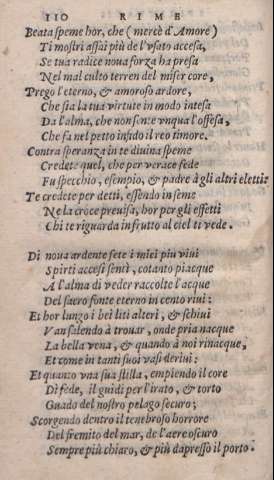 110 RIME
Beata speme hor, che ( mercè d'Amore )
Ti mostri assai più de l'vsato accesa,
Se tua radice noua forza ha presa
Nel mal culto terren del miser core,
Prego l'eterno, & amoroso ardore,
Che sia la tua virtute in modo intesa
Da l'alma, che non sente vnqua l'offesa,
Che fa nel petto insido il reo timore.
Contra speranza in te diuina speme
Credete quel, che per verace fede
Fu specchio, esempio, & padre à gli altri eletti:
Te credete per detti, essendo in seme
Ne la croce preuisa, hor per gli effetti
Chi te riguarda in frutto al ciel ti vede.
Di noua ardente sete i miei piu viui
Spirti accesi sentì, cotanto piacque
A l'alma di veder raccolte l'acque
Del sacro fonte eterno in cento riui:
Et hor lungo i bei liti alteri, & schiui
Van salendo à trouar, onde pria nacque
La bella vena, & quando à noi rinacque,
Et come in tanti suoi vasi deriui:
Et quanto vna sua stilla, empiendo il core
Di fede, il guidi per l'irato, & torto
Guado del nostro pelago securo;
Scorgendo dentro il tenebroso horrore
Del fremito del mar, de l'aere oscuro
Sempre più chiaro, & più dapresso il porto.